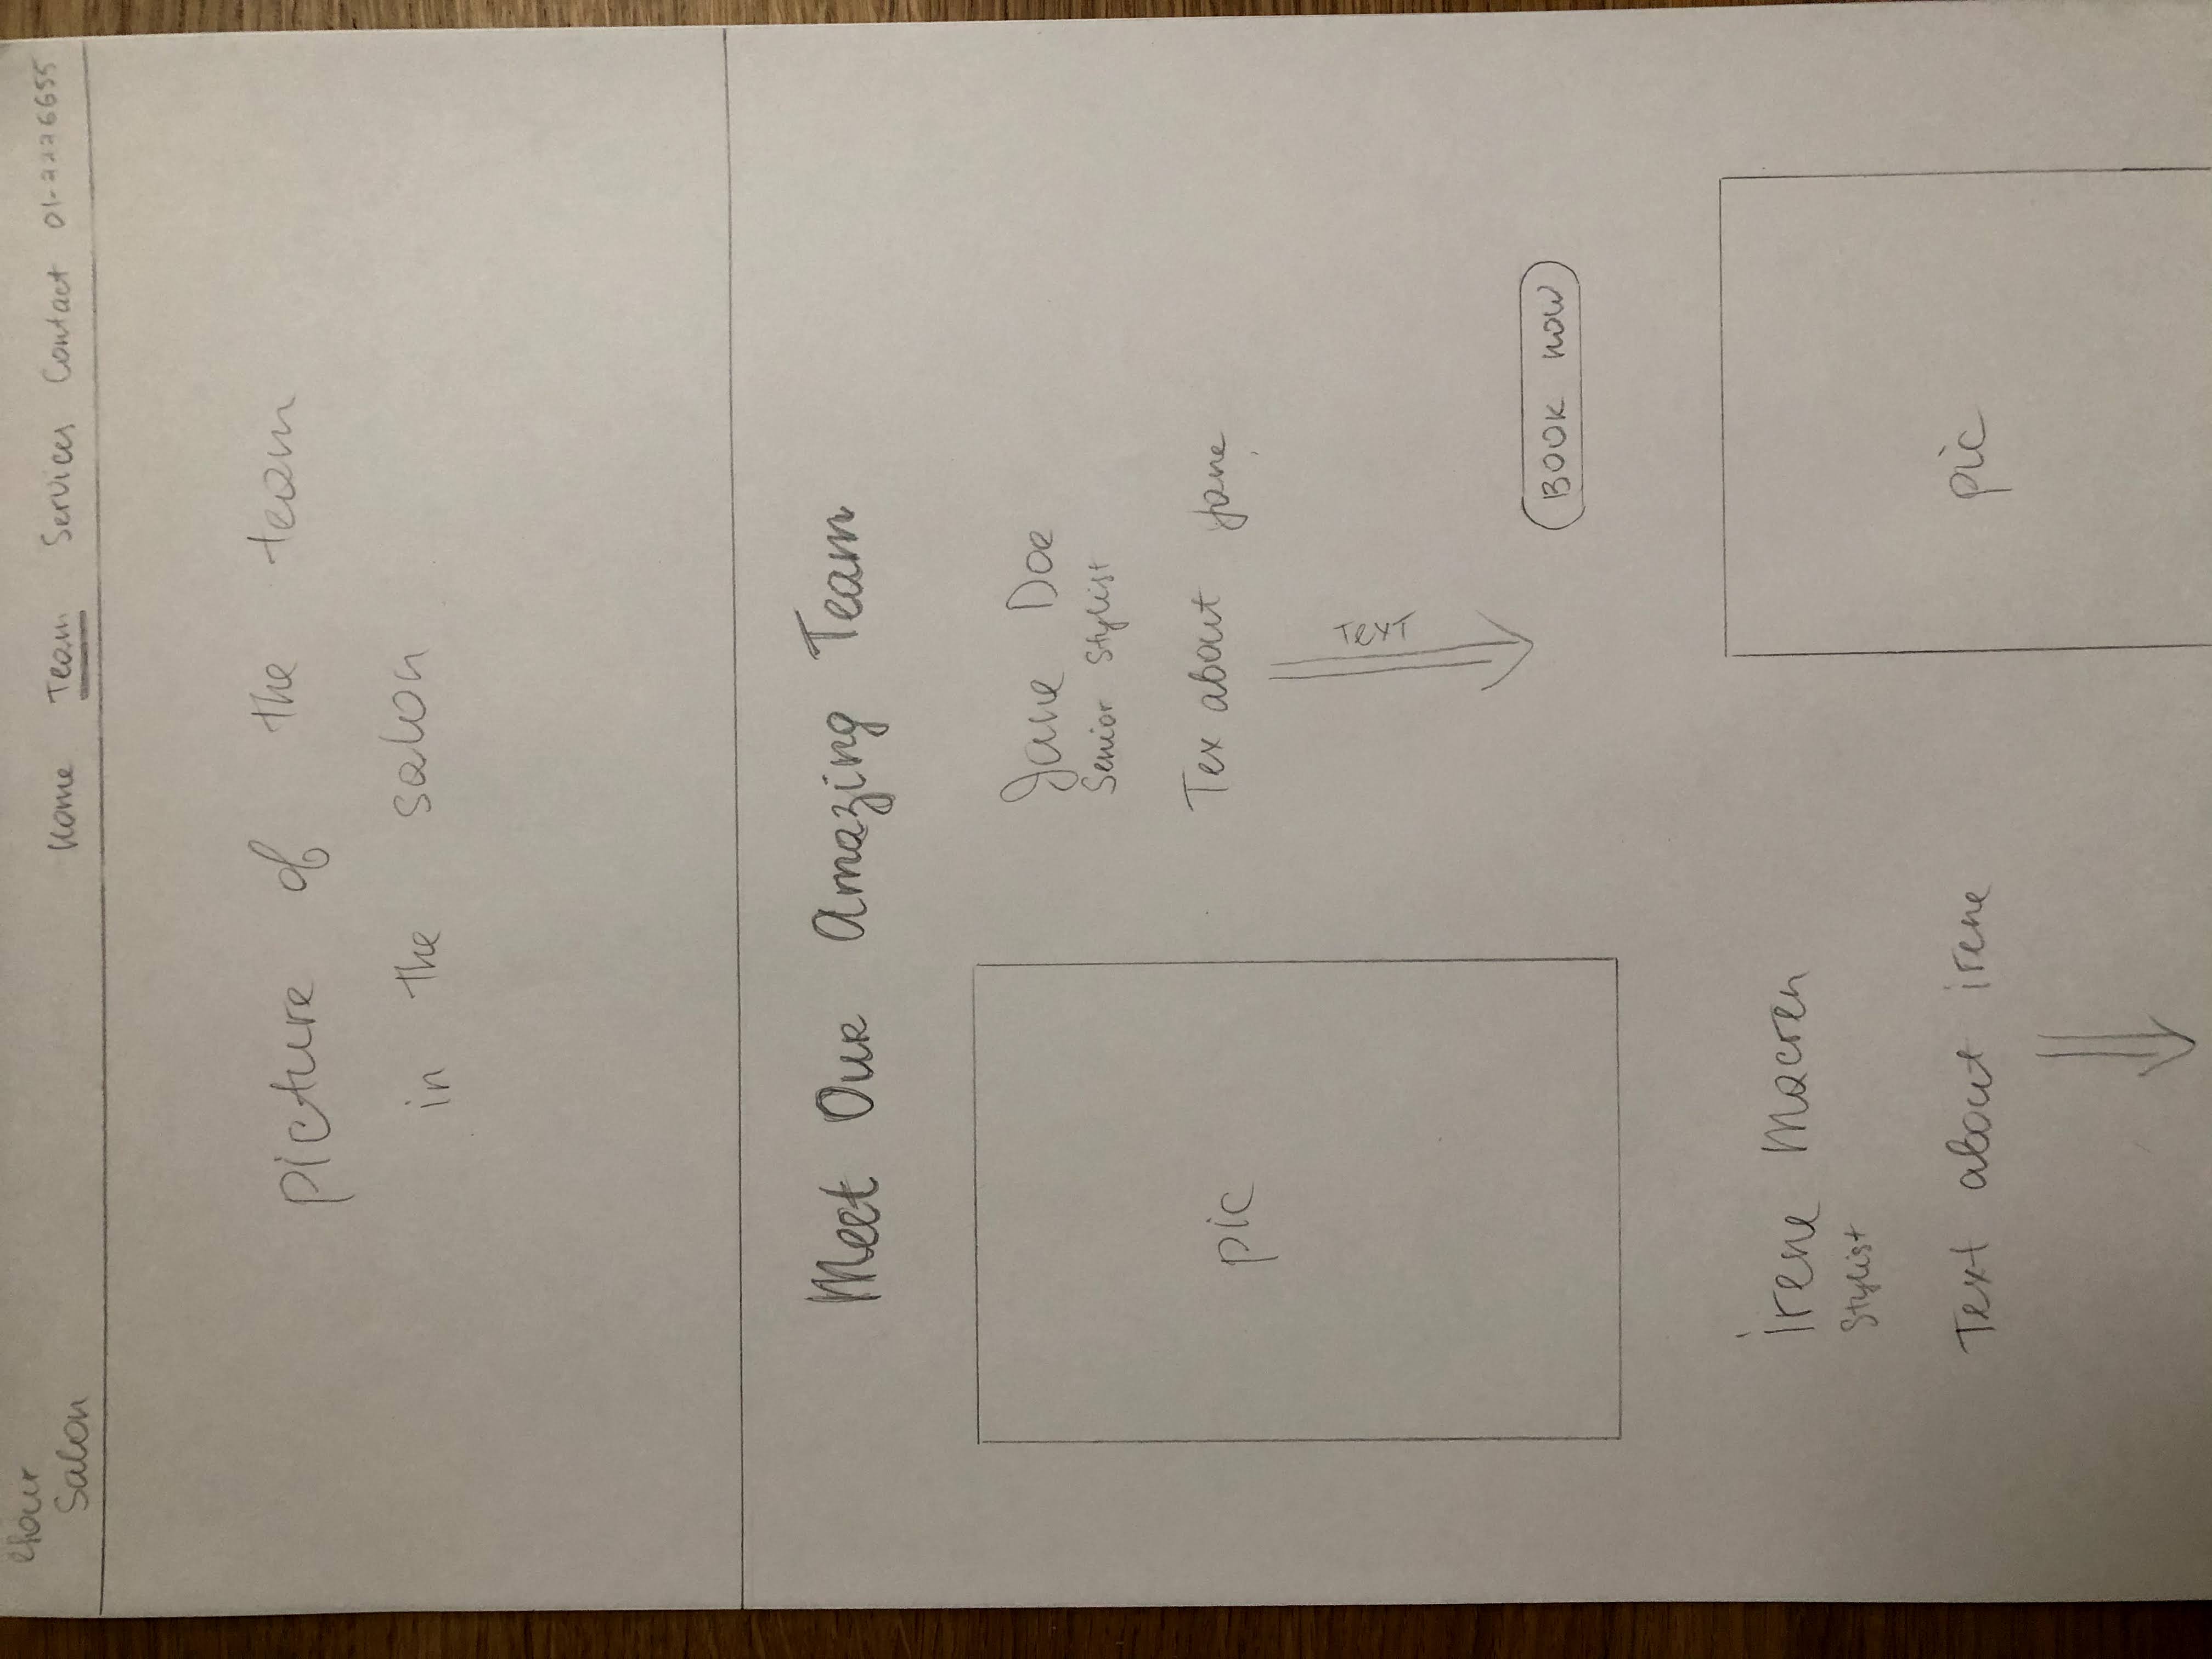 Your
Salon
Home Team Services Contact 01-2226655
picture of the team
in the salon
Meet Our Amazing Team
pic
Jane Doe
Senior Stylist
Tex about jane
TEXT
BOOK NOW
irene Macren
Stylist
Text about irene
pic